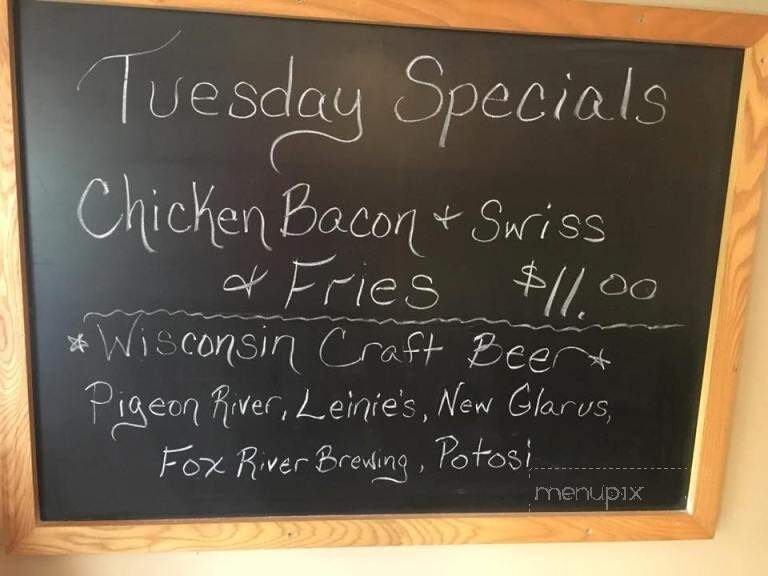 Tuesday Specials
Chicken Bacon + Swiss
& Fries $11.00
*Wisconsin Craft Beer*
Pigeon River, Leinie's, New Glarus,
Fox River Brewing, Potosi
menupix